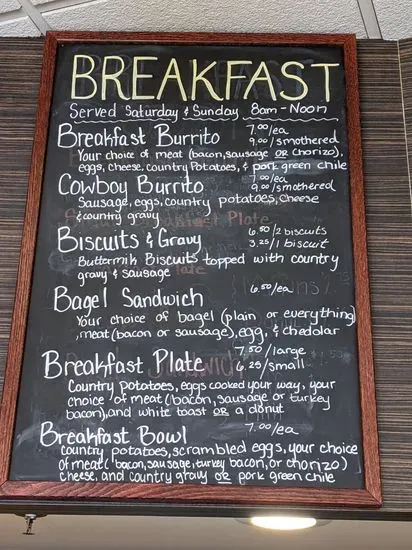 BREAKFAST
Served Saturday & Sunday 8am - Noon
Breakfast Burrito 7.00/ea
9.00/smothered
Your choice of meat (bacon, sausage OR chorizo),
eggs, cheese, country Potatoes, & pork green chile
Cowboy Burrito 7.00/ea
9.00/smothered
Sausage, eggs, country potatoes, cheese
& country gravy
Biscuits & Gravy 6.50/2 biscuits
3.25/1 biscuit
Buttermilk Biscuits topped with country
gravy & sausage
Bagel Sandwich 6.50/ea
Your choice of bagel (plain or everything)
, meat (bacon or sausage), egg, & cheddar
Breakfast Plate 7.50/large
6.25/small
Country potatoes, eggs cooked your way, your
choice of meat (bacon, sausage or turkey
bacon), and white toast OR a donut
Breakfast Bowl 7.00/ea
country potatoes, scrambled eggs, your choice
of meat (bacon, sausage, turkey bacon, or chorizo)
cheese, and country gravy OR pork green chile